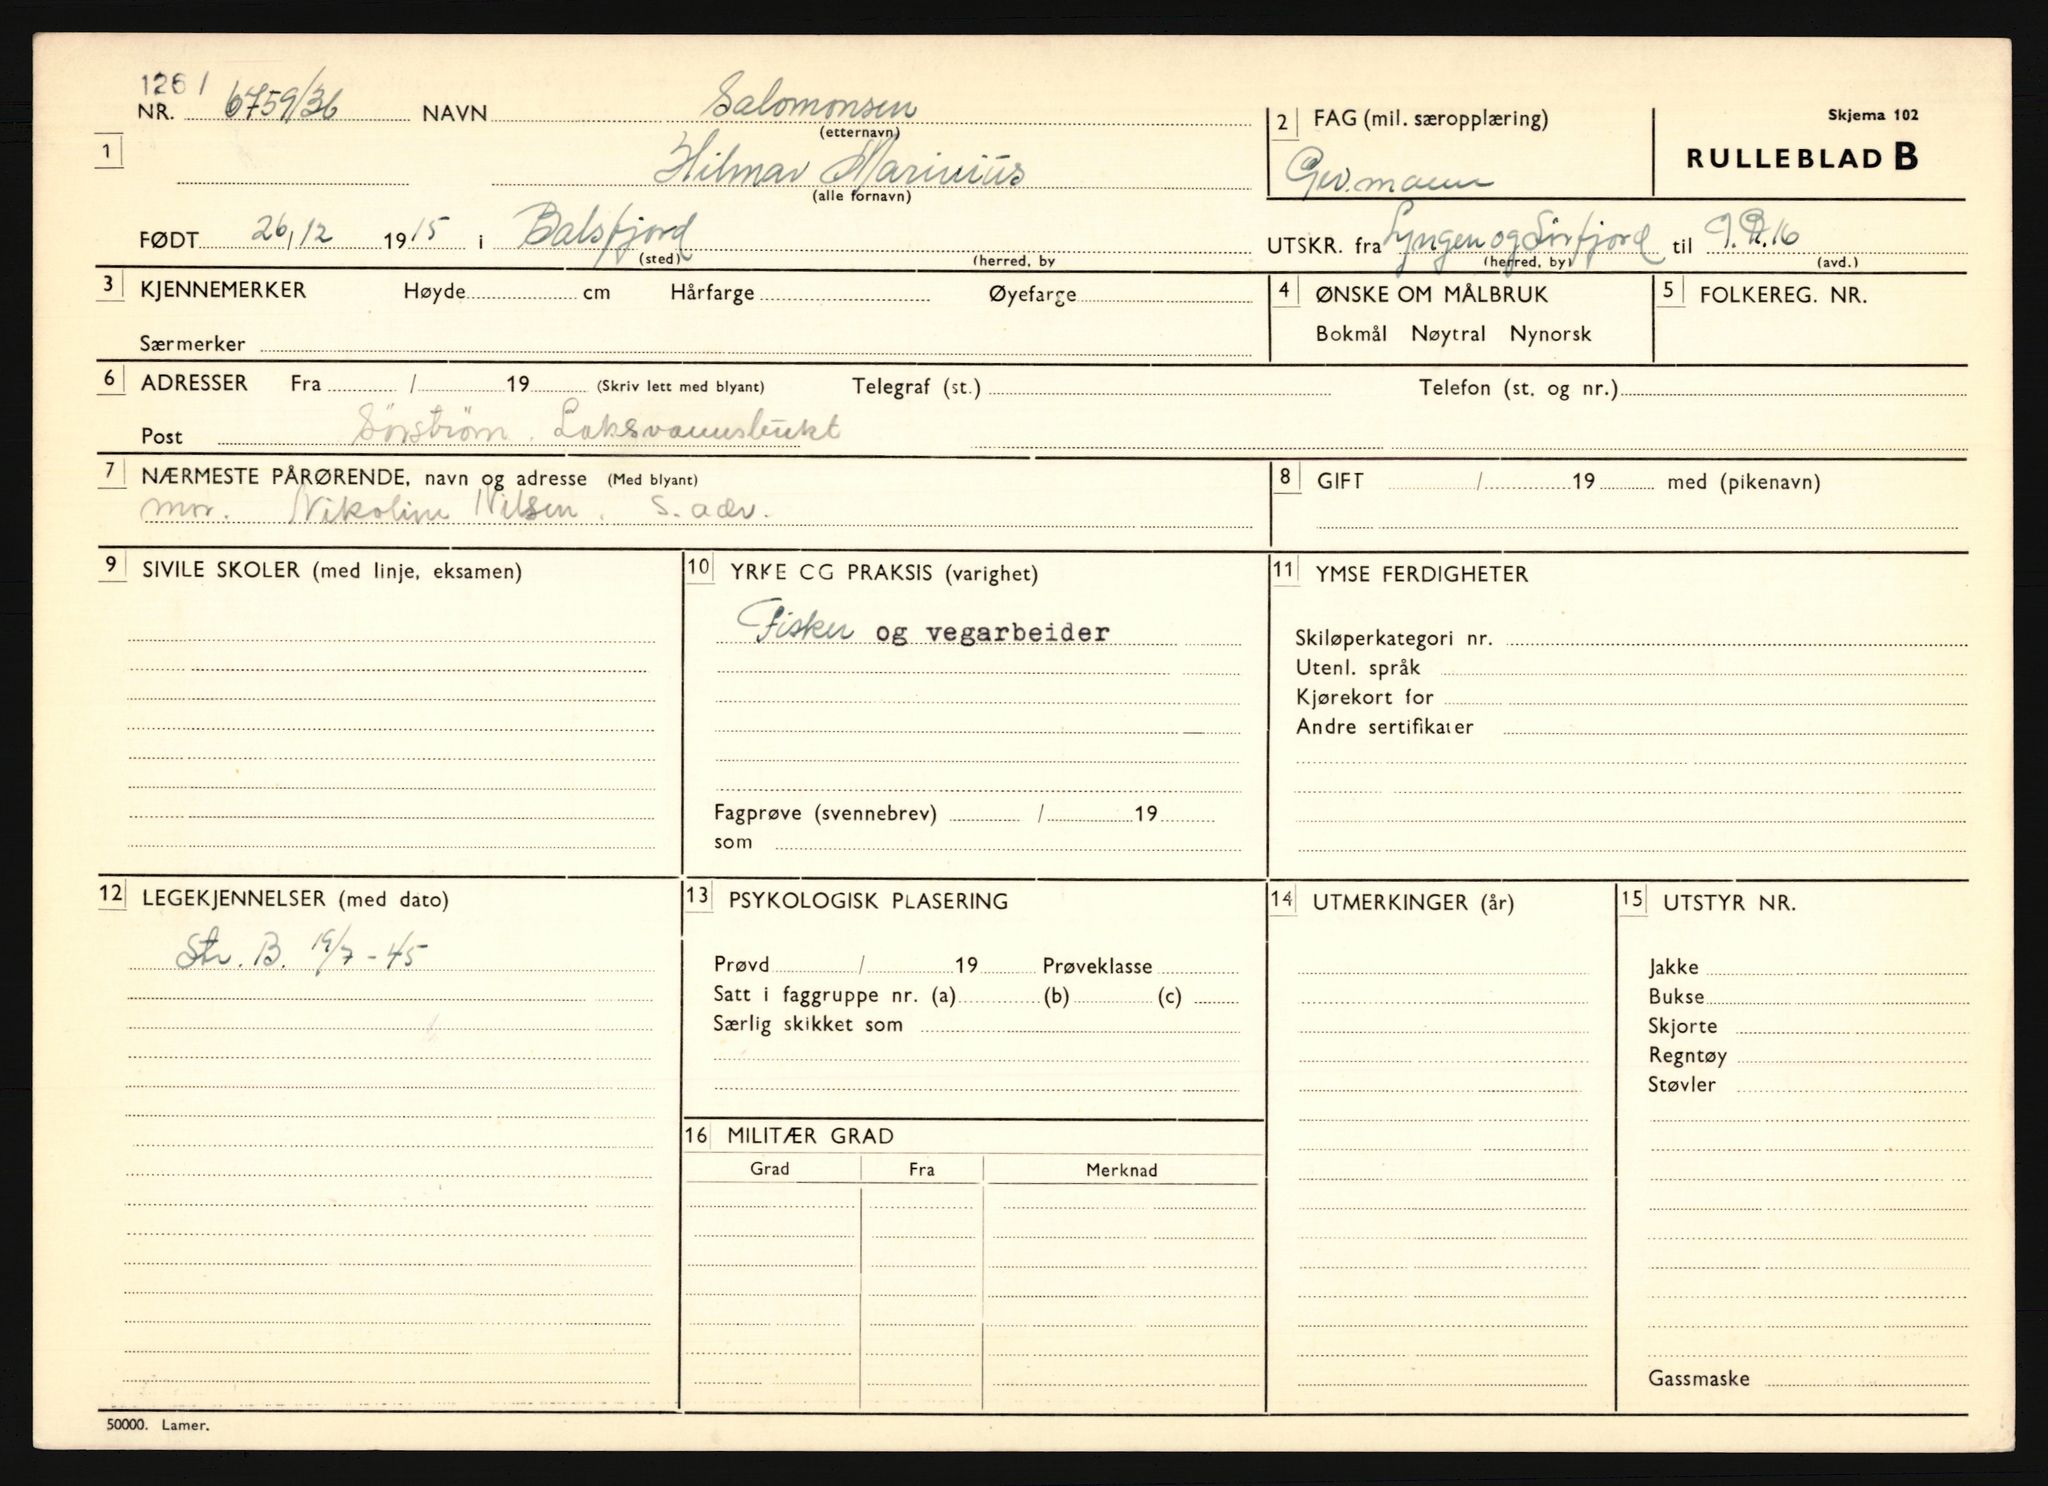 126 /
NR. 6759/36 NAVN Salomonsen
(etternavn)
1 Hilmar Marinius
(alle fornavn)
2 FAG (mil. særopplæring)
Gev.mann
Skjema 102
RULLEBLAD B
FØDT 26, 12 19 15 i Balsfjord
(sted) (herred, by
UTSKR. fra Lyngen og Sørfjord til I.R.16
(herred, by) (avd.)
3 KJENNEMERKER Høyde cm Hårfarge Øyefarge
Særmerker
4 ØNSKE OM MÅLBRUK
Bokmål Nøytral Nynorsk
5 FOLKEREG. NR.
6 ADRESSER Fra / 19 (Skriv lett med blyant) Telegraf (st.) Telefon (st. og nr.)
Post Sørstrøm. Laksvannsbukt
7 NÆRMESTE PÅRØRENDE, navn og adresse (Med blyant)
mor. Nikoline Nilsen. s. adr.
8 GIFT / 19 med (pikenavn)
9 SIVILE SKOLER (med linje, eksamen)
10 YRKE CG PRAKSIS (varighet)
Fisker og vegarbeider
Fagprøve (svennebrev) / 19
som
11 YMSE FERDIGHETER
Skiløperkategori nr.
Utenl. språk
Kjørekort for
Andre sertifikater
12 LEGEKJENNELSER (med dato)
Str. B. 19/7 - 45
13 PSYKOLOGISK PLASERING
Prøvd / 19 Prøveklasse
Satt i faggruppe nr. (a) (b) (c)
Særlig skikket som
14 UTMERKINGER (år)
15 UTSTYR NR.
Jakke
Bukse
Skjorte
Regntøy
Støvler
Gassmaske
16 MILITÆR GRAD
Grad Fra Merknad
50000. Lamer.